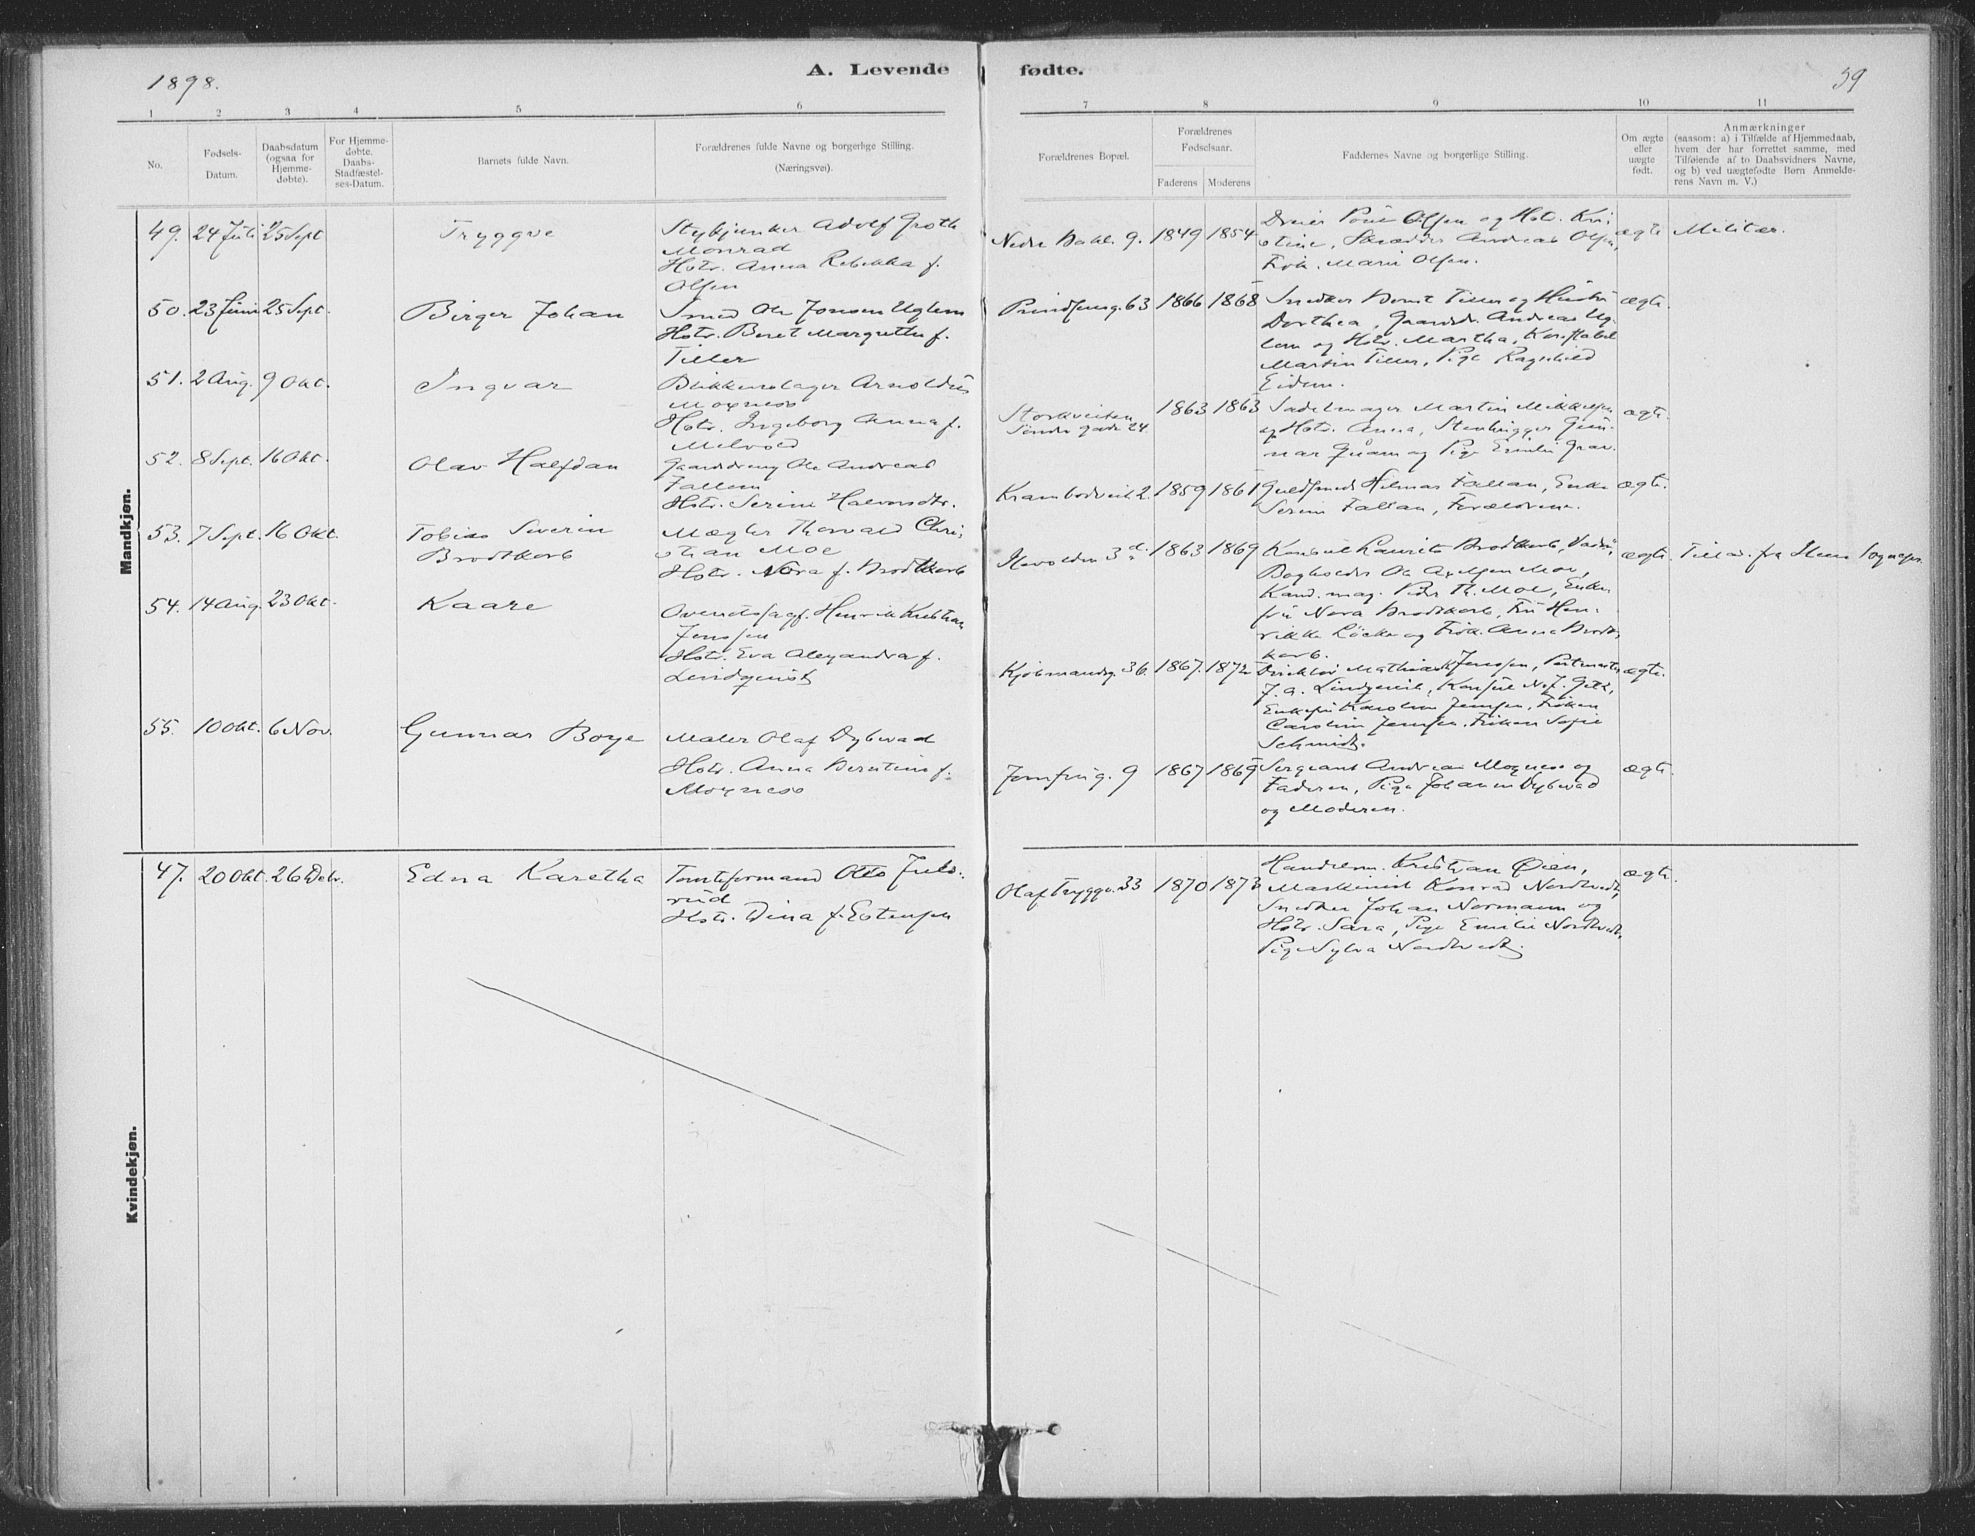 1898.
A. Levende fødte.
39
1 2 3 4 5 6 7 8 9 10 11
No.
Fødsels-
Datum.
Daabsdatum
(ogsaa for
Hjemme-
døbte).
For Hjemme-
døbte.
Daabs-
Stadfæstel-
ses-Datum.
Barnets fulde Navn.
Forældrenes fulde Navne og borgerlige Stilling.
(Næringsvei).
Forældrenes Bopæl.
Forældrenes
Fødselsaar.
Faderens Moderens
Faddernes Navne og borgerlige Stilling.
Om ægte
eller
uægte
født.
Anmærkninger
(saasom: a) i Tilfælde af Hjemmedaab,
hvem der har forrettet samme, med
Tilføiende af to Daabsvidners Navne,
og b) ved uægtefødte Børn Anmelde-
rens Navn m. V.)
Mandkjøn.
49. 24 Juli 25 Sept Tryggve
Stykjunker Adolf Groth
Monrad
Hstr. Anna Rebekka f.
Olsen
Nedre Bakl. 9. 1849 1854
Poul Olsen og Hst. Kri-
stine, Skrædder Andreas Olsen,
Frk. Marie Olsen.
ægte Militær.
50. 23 Juni 25 Sept. Birger Johan
Smed Ole Jonsen Uglem
Hstr. Beret Margrethe f.
Tiller
Prindsensg. 63 1866 1868
Snedker Bernt Tiller og Hustru
Dorthea, Gaardbr. Andreas Ug-
lem og Hstr. Martha,
Martin Tiller, Pige Ragnhild
Eidem.
ægte.
51. 2 Aug. 9 Okt. Ingvar
Blikkenslager Arnoldus
Moxness
Hstr. Ingeborg Anna f.
Melvold
Storkveiten
Søndre gade 24. 1863 1863
Sadelmager Martin Mikkelsen
og Hstr. Anna, Stenhugger Gun-
nar Quam og Pige Emilie Grav.
ægte.
52. 8 Sept. 16 Okt. Olav Halfdan
Gaarddreng Ole Andreas
Fallem
Hstr. Serine Halvorsdtr.
Krambodveit 2. 1859 1861
Guldsmed Hilmar Fallan, Enke
Seren Fallan, Forældrene.
ægte.
53. 7 Sept. 16 Okt. Tobias Severin
Brodtkorb
Mægler Thorvald Chri-
stian Moe
Hstr. Nora f. Brodtkorb
Ilevolden 3 d. 1863 1869
Konsul Laurits Brodtkorb, Vadsø,
Bogholder Ole Axelsen Moe,
Kand. mag. Peder Th. Moe, Enke-
fru Nora Brodtkorb, Fru Hen-
rikke Løcke og Frk. Anna Brodt-
korb.
ægte. fra Ilens Sognepr.
54. 14 Aug. 23 Okt. Kaare
Henrik Kristian
Jenssen
Hstr. Eva Alexandra f.
Lindquist
Kjøbmandsg. 36. 1867. 1872
Direktør Mathias Jenssen, Postmester
J. A. Lindquist, Konsul N. J. Getz,
Enkefru Karoline Jenssen, Frøken
Caroline Jenssen, Frøken Sofie
Schmidt.
ægte.
55. 10 Okt. 6 Nov. Gunnar Boye
Maler Olaf Dybwad
Hstr. Anna Berntine f.
Moxness
Jomfrug. 9 1867 1869
Sergeant Andreas Moxness og
Faderen, Pige Johanne Dybwad
og Moderen.
ægte.
Kvindekjøn.
47. 20 Okt. 26 Debr. Edna Karetha
Tomteformand Otto Juls-
rud
Hstr. Dina f. Estensen
Olaf Tryggv. 33 1870 1873
Handelsm. Kristian Øien,
Maskinist Konrad Nordtvedt,
Snedker Johan Normann og
Hstr. Sara, Pige Emilie Nordtvedt,
Pige Sylva Nordtvedt.
ægte.